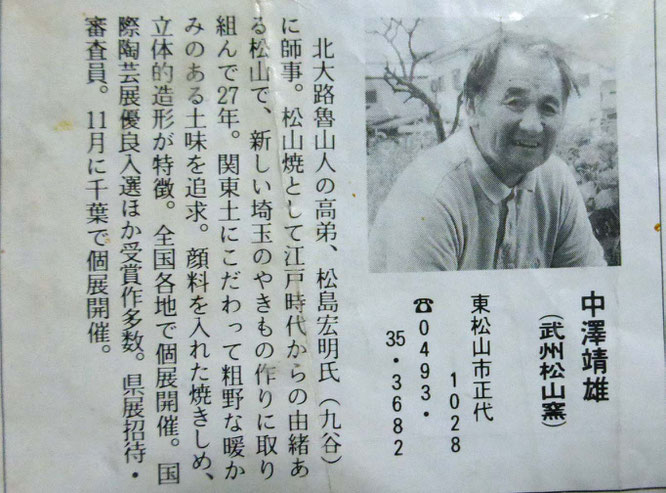 中澤靖雄
(武州松山窯)
東松山市正代
1028
☎0493・
35・3682
北大路魯山人の高弟、松島宏明氏(九谷)
に師事。松山焼として江戸時代からの由緒あ
る松山で、新しい埼玉のやきもの作りに取り
組んで27年。関東土にこだわって粗野な暖か
みのある土味を追求。顔料を入れた焼きしめ、
立体的造形が特徴。全国各地で個展開催。国
際陶芸展優良入選ほか受賞作多数。県展招待・
審査員。11月に千葉で個展開催。